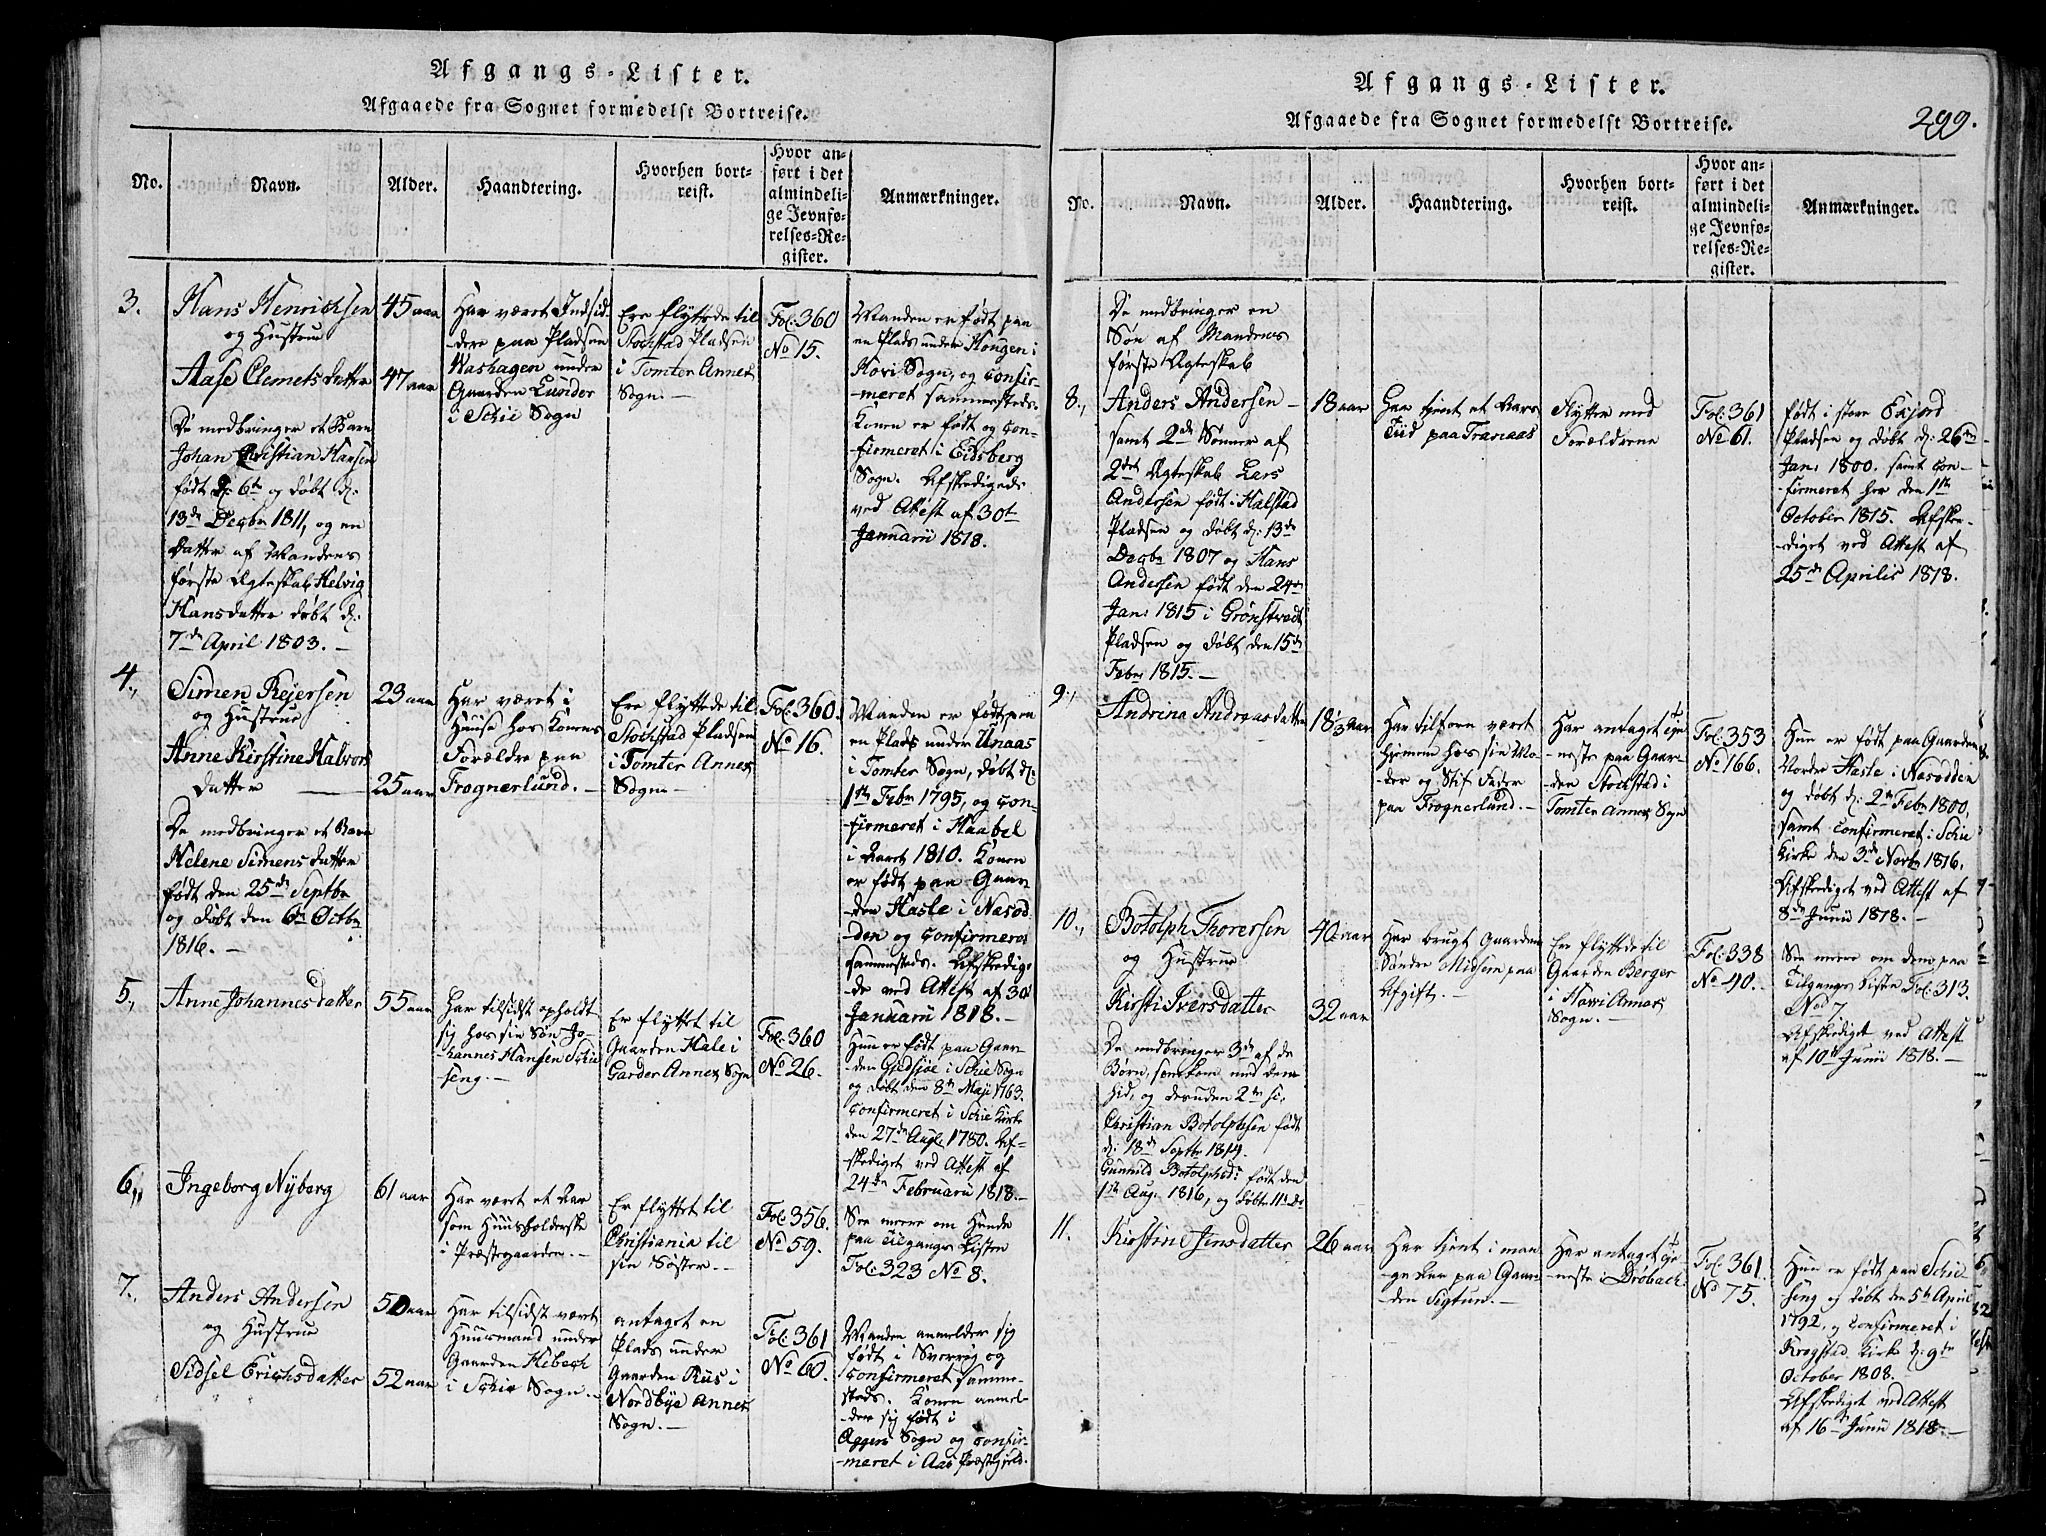 Afgangs-Lister.
Afgaaede fra Sognet formedelst Bortreise.
No.
Navn.
Alder.
Haandtering.
Hvorhen bort-
reist.
Hvor an-
ført i det
almindeli-
ge Jevnfø-
relses-Re-
gister.
Anmærkninger.
3.
Hans Henrichsen
og Hustrue
Aase Clemetsdatter
De medbringer et Barn
Johan Christian Hansen
født d: 6te og døbt d:
13de Decbr 1811, og en
Datter af Mandens
første Ægteskab Helvig
Hansdatter døbt d:
7de April 1803. –
45 aar
47 aar
Har været Indsid-
dere paa Pladsen
under
Gaarden Lunder
i Schie Sogn
Ere flyttede til
Stochstad Pladsen
i Tomter Annex
Sogn. –
Fol: 360
No 15.
Manden er født paa
en Plads under Hougen i
Sogn, og confir-
meret sammesteds.
Konen er født og con-
firmeret i Eidsberg
Sogn. Afskedigede
ved Attest af 30te
Januarii 1818.
4.,
Simen Rejersen
og Hustrue
Anne Kirstine Halvors
datter
De medbringer et Barn
Helene Simensdatter
født den 25de Septbr
og døbt den 6te Octbr
1816. –
23 aar
25 aar
Har været i
Huuse hos Konens
Forældre paa
Frognerlund. –
Ere flyttede til
Stochstad Pladsen
i Tomter Annex
Sogn –
Fol: 360.
No 16.
Manden er født paa
en Plads under Unaas
i Tomter Sogn, døbt d:
1ste Febr 1795, og con-
firmeret i Haabøl
i Aaret 1810. Konen
er født paa Gaar-
den Hasle i Nasod-
den og confirmeret
sammesteds. Afskedige-
de ved Attest af 30
Januarii 1818. –
5.,
Anne Johannesdatter
55 aar
Har tilsidst opholdt
sig hos sin Søn Jo-
hannes Hansen Schie
seng. –
Er flyttet til
Gaarden Hale i
Garder Annex Sogn
Fol: 360
No 26.
Hun er født paa Gaar-
den Gudsjøe i Schie Sogn
og døbt den 8de Maji 1763.
confirmeret i Schie Kirke
den 27de Aug: 1780. Af-
skediget ved Attest af
24de Februarii 1818. –
6.,
Ingeborg Nyberg
61 aar
Har været et Aar
som Huusholderske
i Præstegaarden. –
Er flyttet til
Christiania til
sin Søster. –
Fol: 356.
No 59.
See mere om Hende
paa Tilgangs Listen
Fol: 323 No 8.
7.,
Anders Andersen
og Hustrue
Sidsel Erichsdatter
50 aar
52 aar
Har tilsidst været
Huusmand under
Gaarden Kebech
i Schie Sogn. –
antaget en
Plads under
Gaarden Riis i
Nordbye Annex
Sogn. –
Fol: 361
No 60.
Manden anmelder sig
født i Sverrig og
confirmeret samme-
steds. Konen anmel-
der sig født i
Aggers Sogn og confir-
meret i Aas Præstegjeld.
Afgangs-Lister.
Afgaaede fra Sognet formedelst Bortreise.
299.
No.
Navn.
Alder.
Haandtering.
Hvorhen bort-
reist.
Hvor an-
ført i det
almindeli-
ge Jevnfø-
relses-Re-
gister.
Anmærkninger.
De medbringer en
Søn af Mandens
første Ægteskab
8.,
Anders Andersen –
samt 2de Sønner af
2det Ægteskab Lars
Andersen født i Halstad
Pladsen og døbt d: 13de
Decbr 1807 og Hans
Andersen født den 24de
Jan: 1815 i
Pladsen og døbt den 15de
Febr 1815. –
18 aar
Har tjent et Aars
Tiid paa Tranaas
Flytter med
Forældrene
Fol: 361
No 61.
født i store
Pladsen og døbt d: 26de
Jan: 1800. samt con-
firmeret her den 1ste
October 1815. Afske-
diget ved Attest af
25de Aprilis 1818.
9.,
Andrine Andreasdatter
18 1/3 aar
Har tilforn været
hjemme hos sin Mo-
der og Stif Fader
paa Frognerlund. –
Har antaget tje-
neste paa Gaar-
den Stochstad i
Tomter Annex Sogn
Fol: 353
No 166.
Hun er født paa Gaarden
Nordre Hasle i Nasodden
og døbt d: 2de Febr 1800,
samt confirmeret i Schie
Kirke den 3de Novbr 1816.
Afskediget ved Attest af
8de Junii 1818. –
10.,
Botolph Thorersen
og Hustrue
Kirsti Iversdatter
De medbringer 3de af de
Børn, som kom med dem
hid, og desuden 2de
Christian Botolphsen født
d: 18de Septbr 1814.
Gunnild Botolphsd: født den
1ste Aug: 1816, og døbt 11te
40 aar
32 aar
Har brugt Gaarden
Søndre Midsem paa
Afgift. –
Ere flyttede til
Gaarden Berger
i Annex
Sogn. –
Fol: 338
No 40. –
See mere om dem paa
Tilgangs Listen Fol: 313.
No 7
Afskediget ved Attest
af 10de Junii 1818. –
11.
Kirstine Jensdatter
26 aar
Har tjent i man-
ge Aar paa Gaar-
den Sigtun. –
Har antaget tje-
neste i Drøbach
Fol: 361.
No 75.
Hun er født paa Schie
seng og døbt den 5te April
1792, og confirmeret i
Krogstad Kirke d: 9de
October 1808.
Afskediget ved Attest
af 16de Junii 1818 –